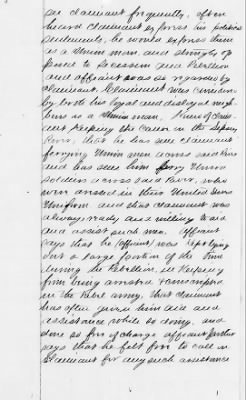 saw claimant frequently, often
heard claimant express his political
sentiments, he would express them
as a Union man and strongly op
posed to secession and Rebellion
and affiant was so regarded by
claimant. Claimant was considered
by both his loyal and disloyal neigh
bors as a Union man. Knew of claim
ant keeping the canoe in the
River, that he has seen claimant
ferrying Union men across said River
and has seen him ferry Union
soldiers across said River, who
were dressed in their United States
Uniform and that claimant was
always ready and willing to aid
and assist such men. Affiant
says that he (affiant) was kept lying
out a large portion of the time
during the Rebellion, in keeping
from being arrested & conscripted
in the Rebel army, that claimant
has often given him aid and
assistance while so doing, and
done so free of charge affiant further
says that he felt free to call on
Claimant for any such assistance